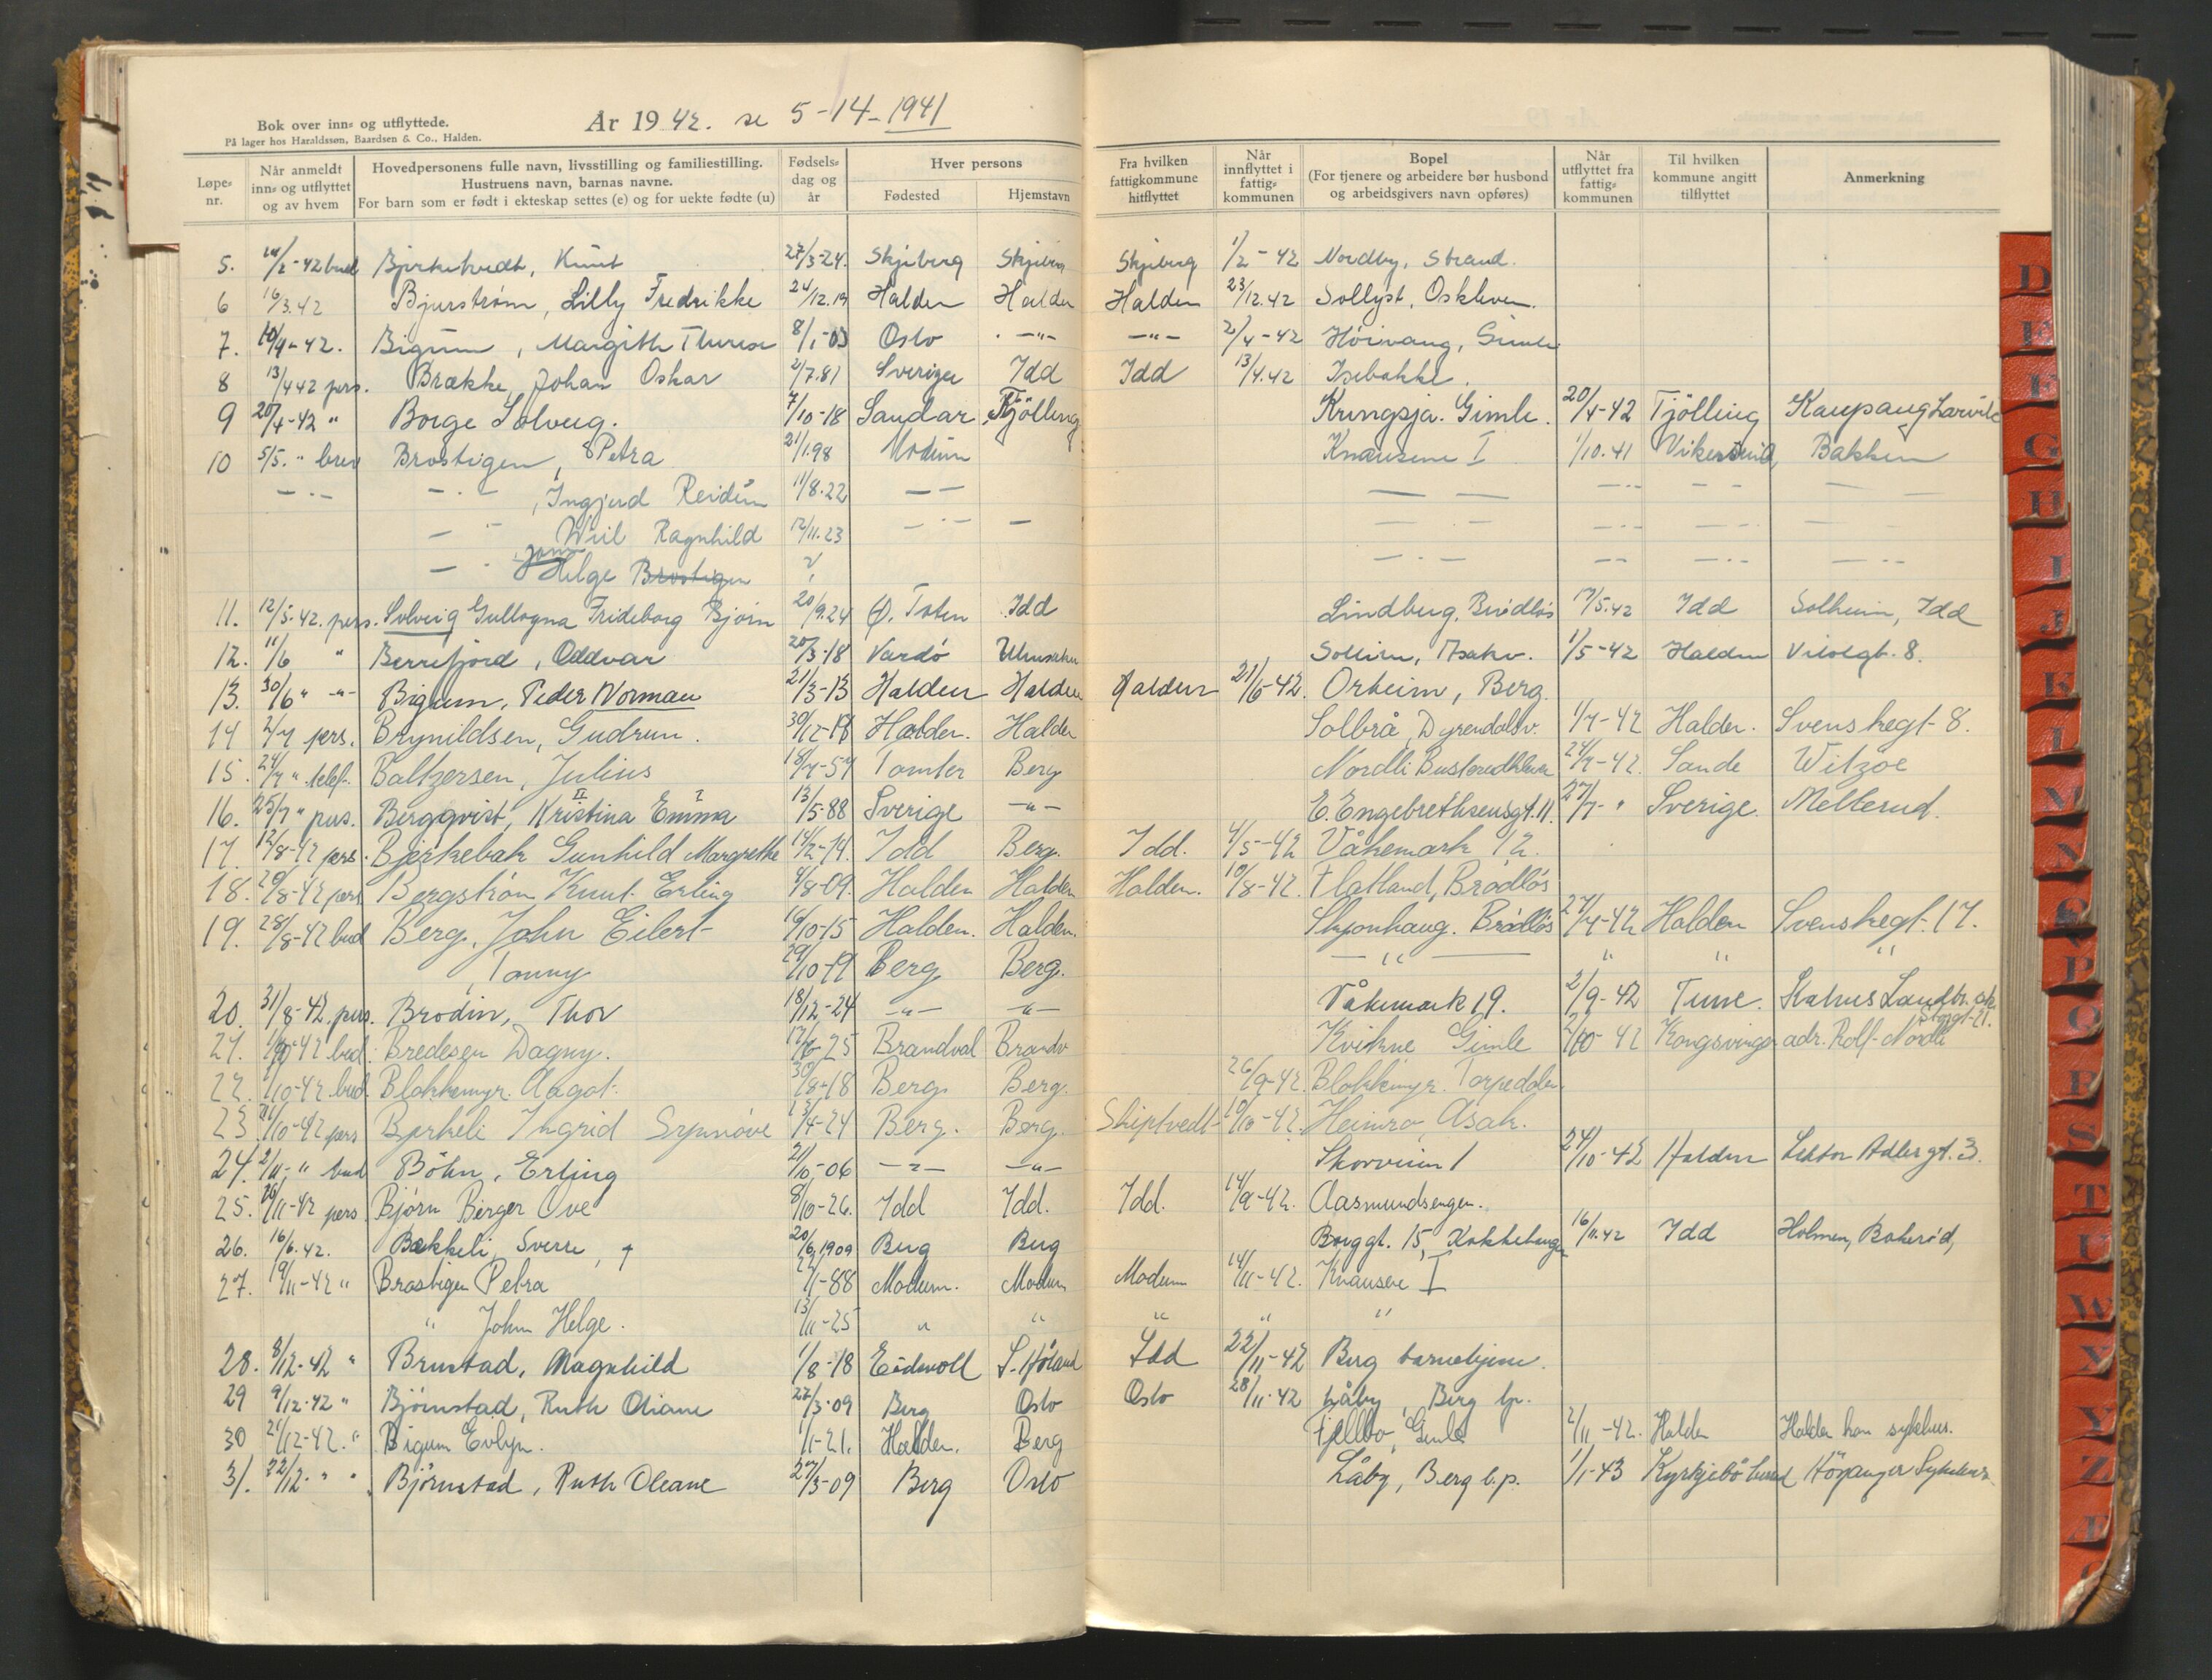 Bok over inn- og utflyttede.
På lager hos Haraldssøn, Baardsen & Co., Halden.
Ar 19 42. se 5-14-1941
Løpe-nr. Når anmeldt inn- og utflyttet og av hvem Hovedpersonens fulle navn, livsstilling og familiestilling. Hustruens navn, barnas navne. For barn som er født i ekteskap settes (e) og for uekte fødte (u) Fødsels-dag og år Hver persons Fødested Hjemstavn Fra hvilken fattigkommune hitflyttet Når innflyttet i fattig-kommunen Bopel (For tjenere og arbeidere bør husbond og arbeidsgivers navn opføres) Når utflyttet fra fattig-kommunen Til hvilken kommune angitt tilflyttet Anmerkning
5. /2-42 bud Bjerketvedt, Knut 27/3-24. Skjeberg Skjeberg Skjeberg 1/2-42 Nordby, Strand.
6 16/3.42 Bjurstrøm, Lilly Fredrikke 24/12.19 Halden Halden Halden 23/12.42 Sollyst, Oskleven.
7. 10/4-42. Bigum, Margith Therese 8/1-03 Oslo -"- -"- 2/4-42 Høivang, Gimle
8 13/4 42 pers. Brække, Johan Oskar 2/7.81 Sverige Idd Idd 13/4.42 Isebakke.
9 20/4-42 " Borge Solveig. 7/10-18 Sandar Tjølling Krungsja. Gimle. 20/4-42 Tjölling Kaupang Larvik
10 5/5. " brev Brostigen, Petra 21/1.98 Modum Knausene I 1/10.41 Vikersund Bakken
-"- -"- , Ingjerd Reidun 11/8.22 -"- -"- -"- -"- -"-
-"- Wiil Ragnhild 12/11.23 -"- - -"- -"- -"- -
- " - John Helge Brostigen ? -"- -- -"- -"-
11. 12/5-42. pers. Solveig Gullogna Frideborg Bjørn 20/9.24 Ø. Toten Idd Lindberg, Brødløs /5.42 Idd Solheim, Idd
12. 11/6 " Berrefjord, Oddvar 20/3-18 Vardö Solheim, Asakv. 1/5-42 Halden 8.
13. 30/6 " -"- Bigum, Peder Norman 21/3-13 Halden Halden Halden 21/6-42. Orheim, Berg.
14 2/7 pers. Brynildsen, Gudrun. 30/12-18 Halden. Halden Solbrå, Dyrendalsv. 1/7-42 Halden. Svenskegt-8.
15. 24/7 " telef. Baltzersen, Julius 18/7-57 Tomter Berg Nordli Busteredkleven 24/7-42. Sande Witzøe
16. 25/7 " pers. Bergqvist, Kristina Emma 13/5-88 Sverige -"- E. Engebrethsensgt. 11. 27/7- " Sverige. Mellerud.
17. 12/8-42 pers. Bjerkebak Gunhild Margrethe 14/2-14. Idd Berg. Idd. 4/5-42 Våkemark 12.
18. 20/8-42 pers Bergstrøm Knut Erling 4/8-09 Halden Halden Halden. 10/8-42. Flatland, Brødløs
19. 28/8-42 bud Berg, John Eilert- 16/10-15 Halden. Halden. Skjonhaug. Brødløs 27/7-42 Halden Svenskegt. 17.
, Tonny 29/10-19 Berg Berg. -"- " " "
20. 31/8-42. pers. Brodin, Thor 18/12-24 -"- -"- Våkemark 19. 2/9-42 Tune. Kalnes Landbr. sk.
21. /10-42 bud. Bredesen Dagny. 12/6-25 Brandval Brandv Kvikne Gimle 2/10-42 Kongsvinger adr. Rolf Nordli Storgt-21.
22. /10-42 bud. Blakkemyr. Aagot. 30/8-18 Berg. Berg. 26/9-42. Blakkemyr. Torpedalen
23. 21/10-42 pers Bjerkeli Ingrid Synnøve 23/4-24 Berg. Berg. Skiptvedt 10/10-42. Heimro, Asak.
24. 2/11- " bud Böhn, Erling 21/10-06 -"- -"- Skovheim 1 24/10-42 Halden Lektor Adlers gt. 3.
25. 26/11-42 pers Bjørn Birger Ove 8/10-26. Idd Idd. Idd. 14/9-42. Aasmundsengen.
26. 16/6.42. Bækkeli, Sverre, 20/6 1909 Berg Berg Borggt. 15, Kokkehaugen 16/11.42 Idd Holmen, Bakerød,
27. 19/11-42 " Brostigen Petra 22/1-88 Modum. Modum Modum 14/11-42. Knausene I
" John Helge. 13/11-25 " " " " "
28. 8/12-42 " Brustad, Magnhild 1/8-18 Eidsvoll S. Høland Idd 22/11-42 Berg barnehjem.
29 9/12-42 " Bjørnstad, Ruth Oliane 27/3-09 Berg Oslo Oslo 28/11.42 Låby, Berg l.p.
30 21/12-42. " Bigum Evlyn. 1/1-21. Halden. Berg Fjellbo, Gimle 2/11-42. Halden Halden kom sykehus.
31. 22/12. " " Bjørnstad, Ruth Oleane 27/3-09 Berg Oslo Låby, Berg l.p. 1/1-43 Kyrkjebö herred Höyanger Sykehus.
D
E
F
G
H
I
J
K
L
M
N
O
P
Q
R
S
T
U
W
X
Y
Z
Æ